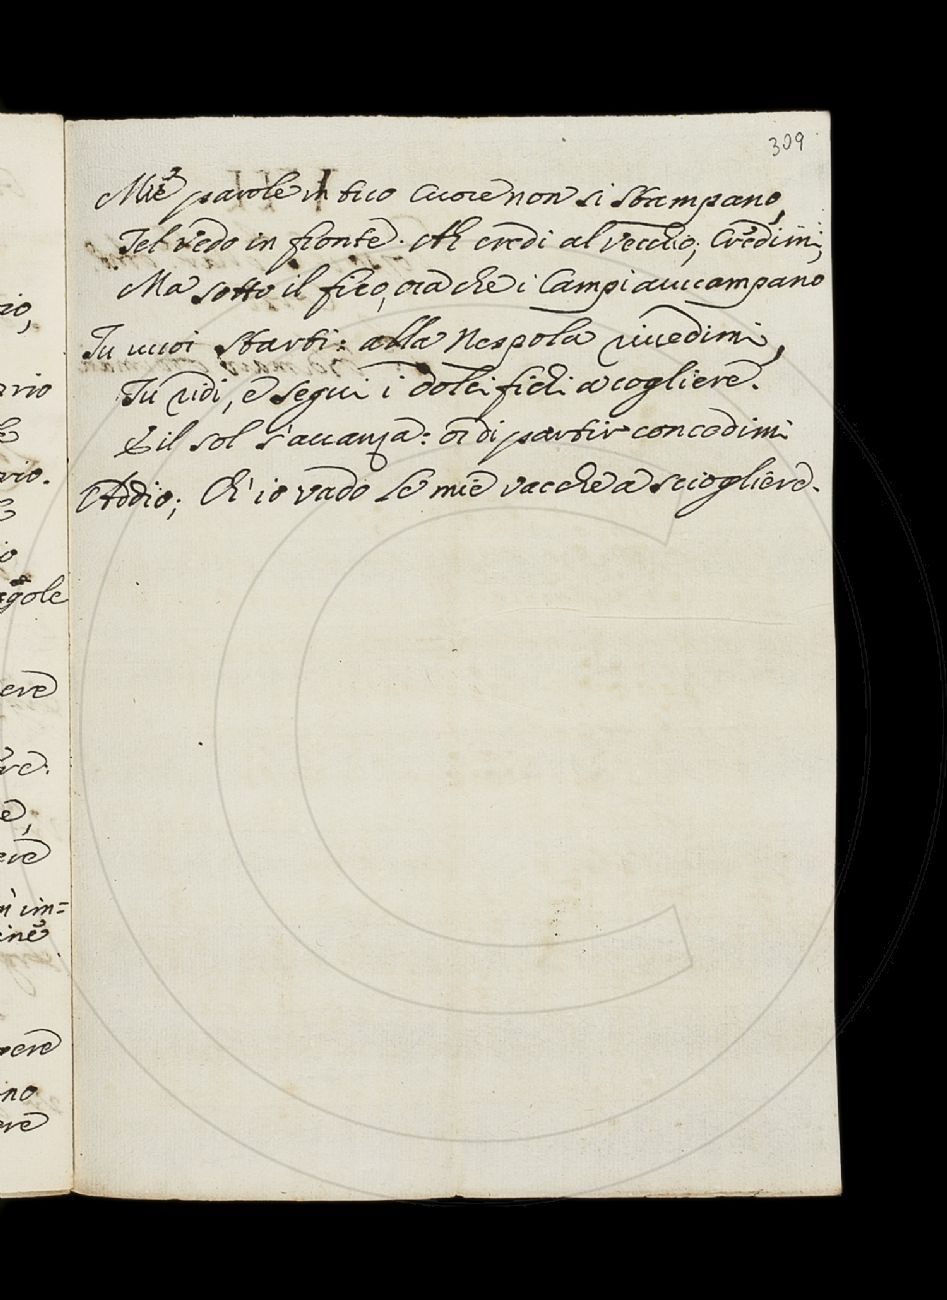 309
Mie parole in tuo Cuore non si stampano,
Tel vedo in fronte. Ah credi al vecchio; Credimi,
Ma sotto il fico, ora che i Campi avvampano
Tu vuoi starti: alla Nespola rivedimi,
Tu ridi, e segui i dolci fichi a cogliere.
E il sol s'avanza: or di partir concedimi
Addio; Ch'io vado le mie vacche a sciogliere.